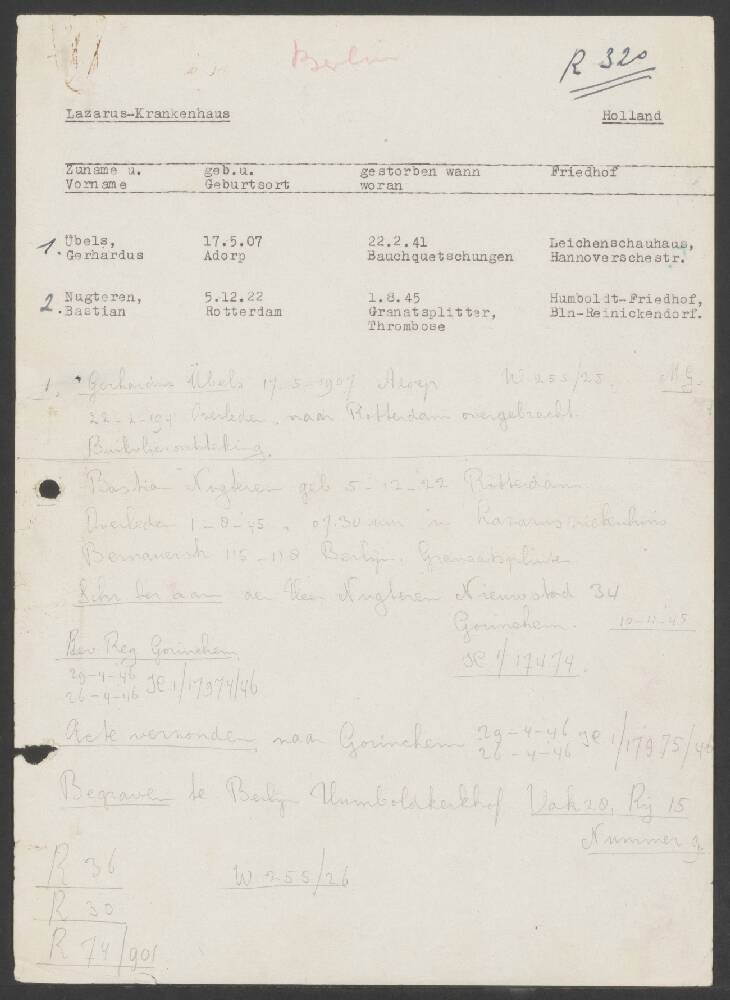 Berlin
R 320
Lazarus-Krankenhaus Holland
Zuname u. geb.u. gestorben wann Friedhof
Vorname Geburtsort woran
1. Übels, 17.5.07 22.2.41 Leichenschauhaus,
Gerhardus Adorp Bauchquetschungen Hannoverschestr.
2. Nugteren, 5.12.22 1.8.45 Humboldt-Friedhof,
Bastian Rotterdam Granatsplitter, Bln-Reinickendorf.
Thrombose
1. Gerhardus Übels 17-5-1907 Adorp W 255/25. M.G.
22-2-194 Overleden, naar Rotterdam overgebracht.
Bastian Nugteren geb 5-12-22 Rotterdam
Overleden 1-8-45, 07.30 uur in Lazarusziekenhuis
Bernauerstr 115-118 Berlijn. Granaatsplinter
aan de Heer Nugteren Nieuwstad 34
Gorinchem. 10-11-45
Bev Reg Gorinchem 1/17474.
29-4-46
26-4-46 1/17974/46
Acte verzonden naar Gorinchem 29-4-46 1/17975/46
26-4-46
Begraven te Berlijn Humboldkerkhof Vak 28, Rij 15
Nummer 2
R 36
W 255/26
R 30
R 74/901